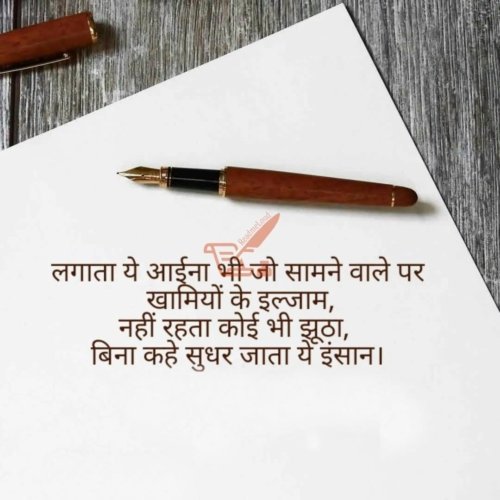 ReadmeLoud
लगाता ये आईना भी जो सामने वाले पर
खामियों के इल्जाम,
नहीं रहता कोई भी झूठा,
बिना कहे सुधर जाता ये इंसान।